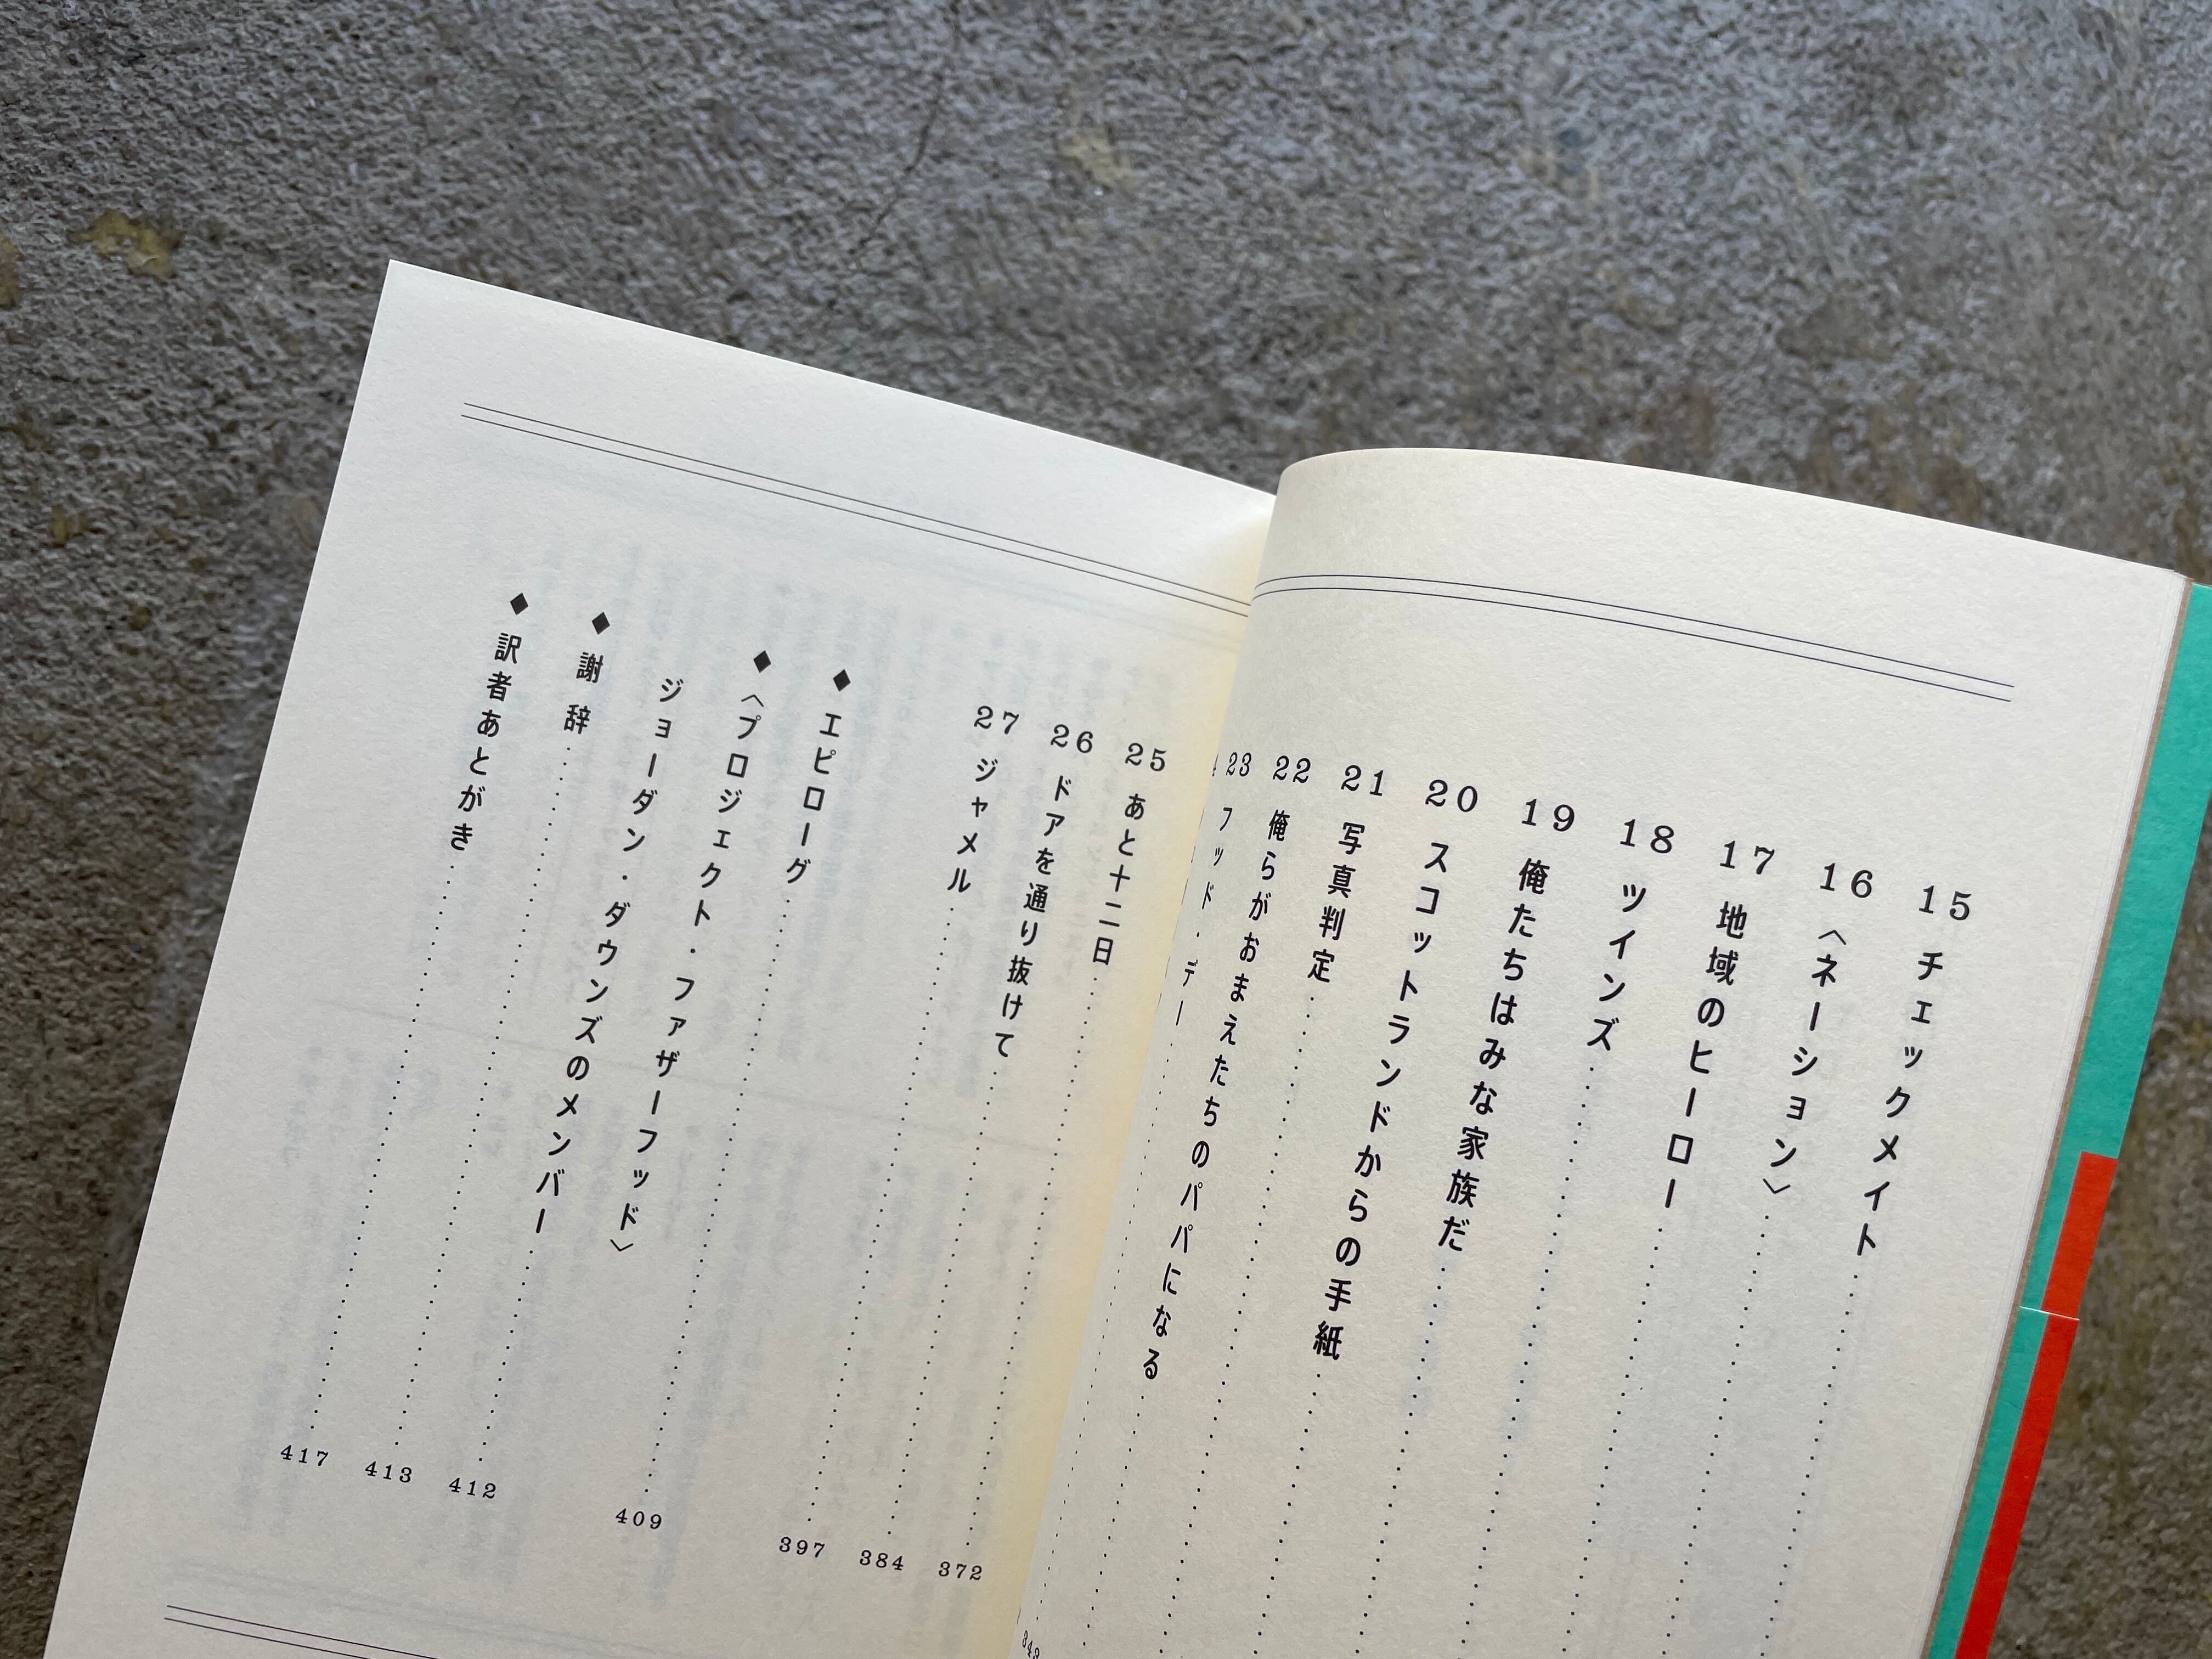 15 チェックメイト
16 〈ネーション〉
17 地域のヒーロー
18 ツインズ
19 俺たちはみな家族だ
20 スコットランドからの手紙
21 写真判定
22 俺らがおまえたちのパパになる
23 フッド・デー
25 あと十二日 372
26 ドアを通り抜けて 384
27 ジャメル 397
◆ エピローグ 409
◆ 〈プロジェクト・ファザーフッド〉
ジョーダン・ダウンズのメンバー 412
◆ 謝辞 413
◆ 訳者あとがき 417